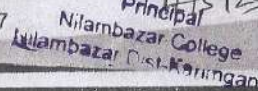 7
Principal
Nilambazar College
Nilambazar Dist-Karimgan